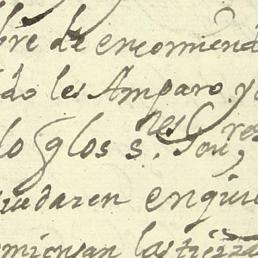 bre de encomiend
do les Amparo y
lo q los s.
quedaren enqui
miensan las tierra